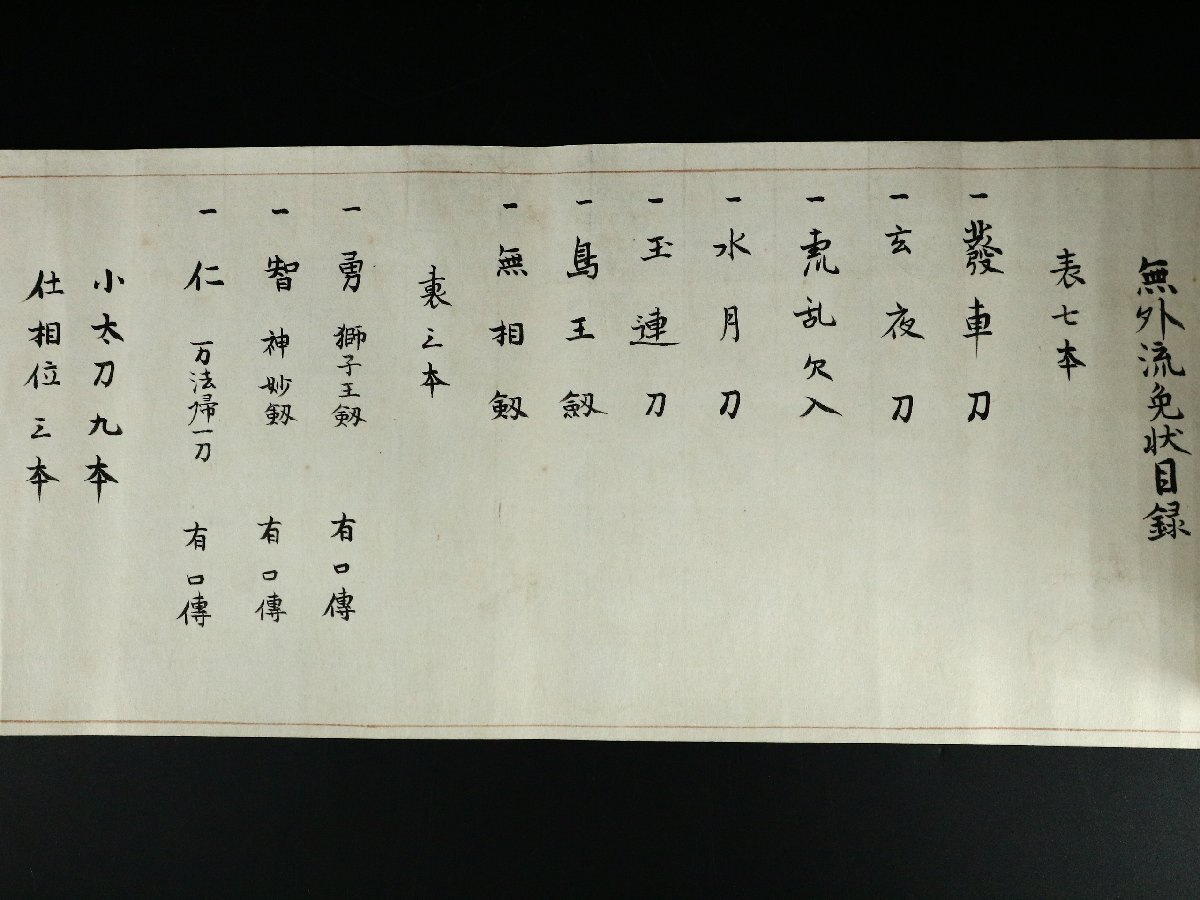 無外流免状目録
表七本
一 發車刀
一 玄夜刀
一 虎乱欠入
一 水月刀
一 玉連刀
一 鳥王劔
一 無相劔
裏三本
一 勇 獅子王劔 有口傳
一 智 神妙劔 有口傳
一 仁 万法帰一刀 有口傳
小太刀九本
仕相位三本